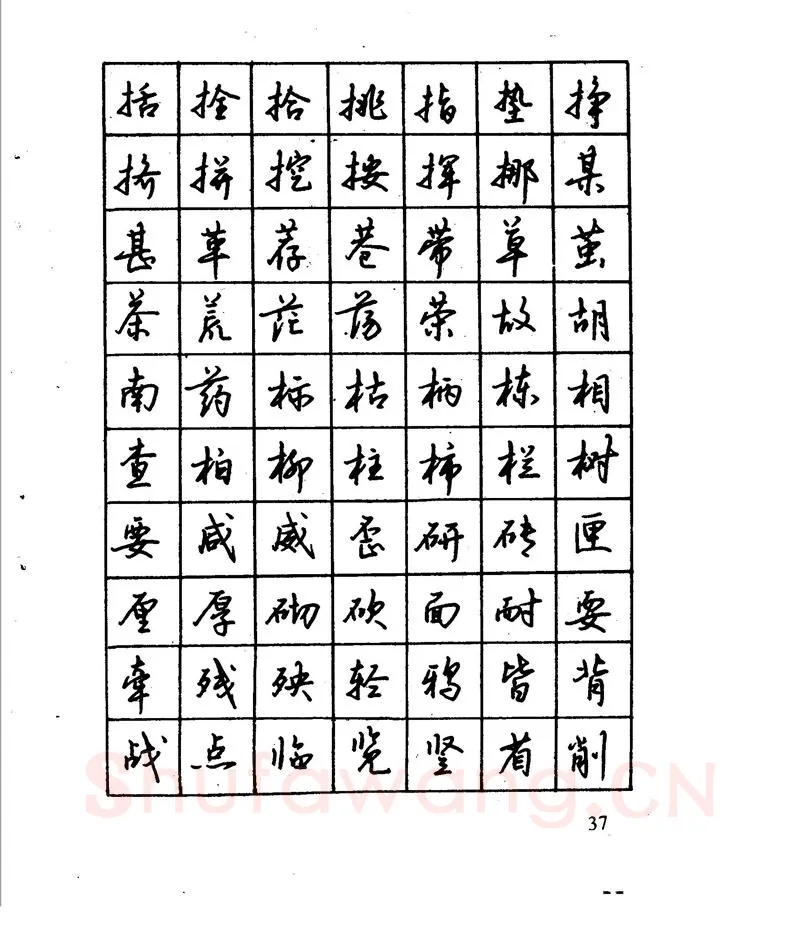 括 拴 拾 挑 指 垫 挣
挤 拼 挖 按 挥 挪 某
甚 革 荐 巷 带 草 茧
茶 荒 茫 荡 荣 故 胡
南 药 标 枯 柄 栋 相
查 柏 柳 柱 柿 栏 树
要 咸 威 歪 研 砖 匣
厘 厚 砌 砍 面 耐 耍
牵 残 殃 轻 鸦 皆 背
战 点 临 览 竖 省 削
Shufawang.CN
37